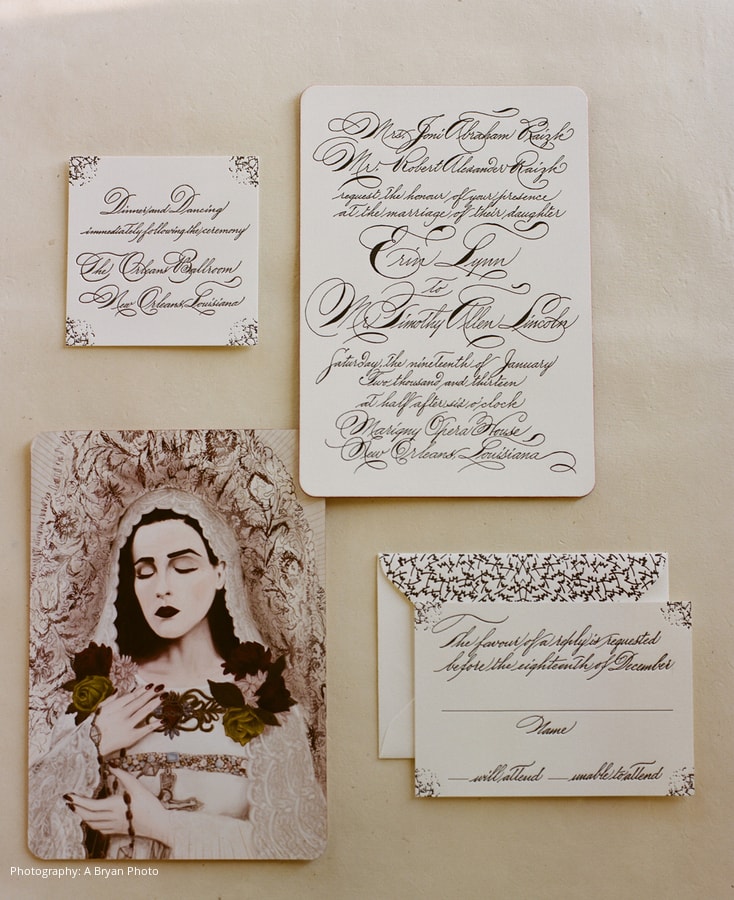 Dinner and Dancing
immediately following the ceremony
The Orleans Ballroom
New Orleans, Louisiana
Mrs. Joni Abraham Raizk
Mr. Robert Alexander Raizk
request the honour of your presence
at the marriage of their daughter
Erin Lynn
to
Mr. Timothy Allen Lincoln
Saturday, the nineteenth of January
Two thousand and thirteen
at half after six o'clock
Marigny Opera House
New Orleans, Louisiana
The favour of a reply is requested
before the eighteenth of December
Name
will attend unable to attend
Photography: A Bryan Photo